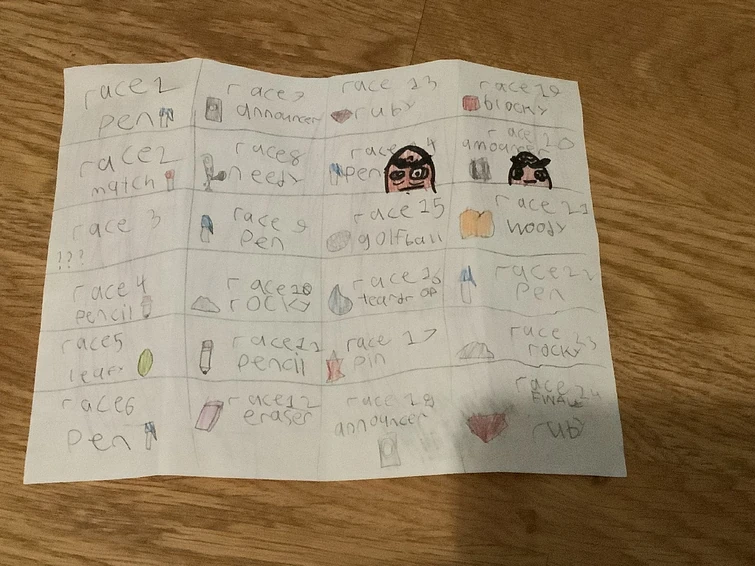 race 1
pen
race 2
match
race 3
???
race 4
pencil
race5
leafy
race6
pen
race 7
announcer
race 8
needy
race 9
pen
race 10
rocky
race 11
pencil
race 12
eraser
race 13
ruby
race 4
pen
race 15
golfball
race 16
teardrop
race 17
pin
race 18
announcer
race 19
blocky
race 20
announcer
race 21
woody
race 22
pen
race 23
rocky
race 24
FINALE
ruby